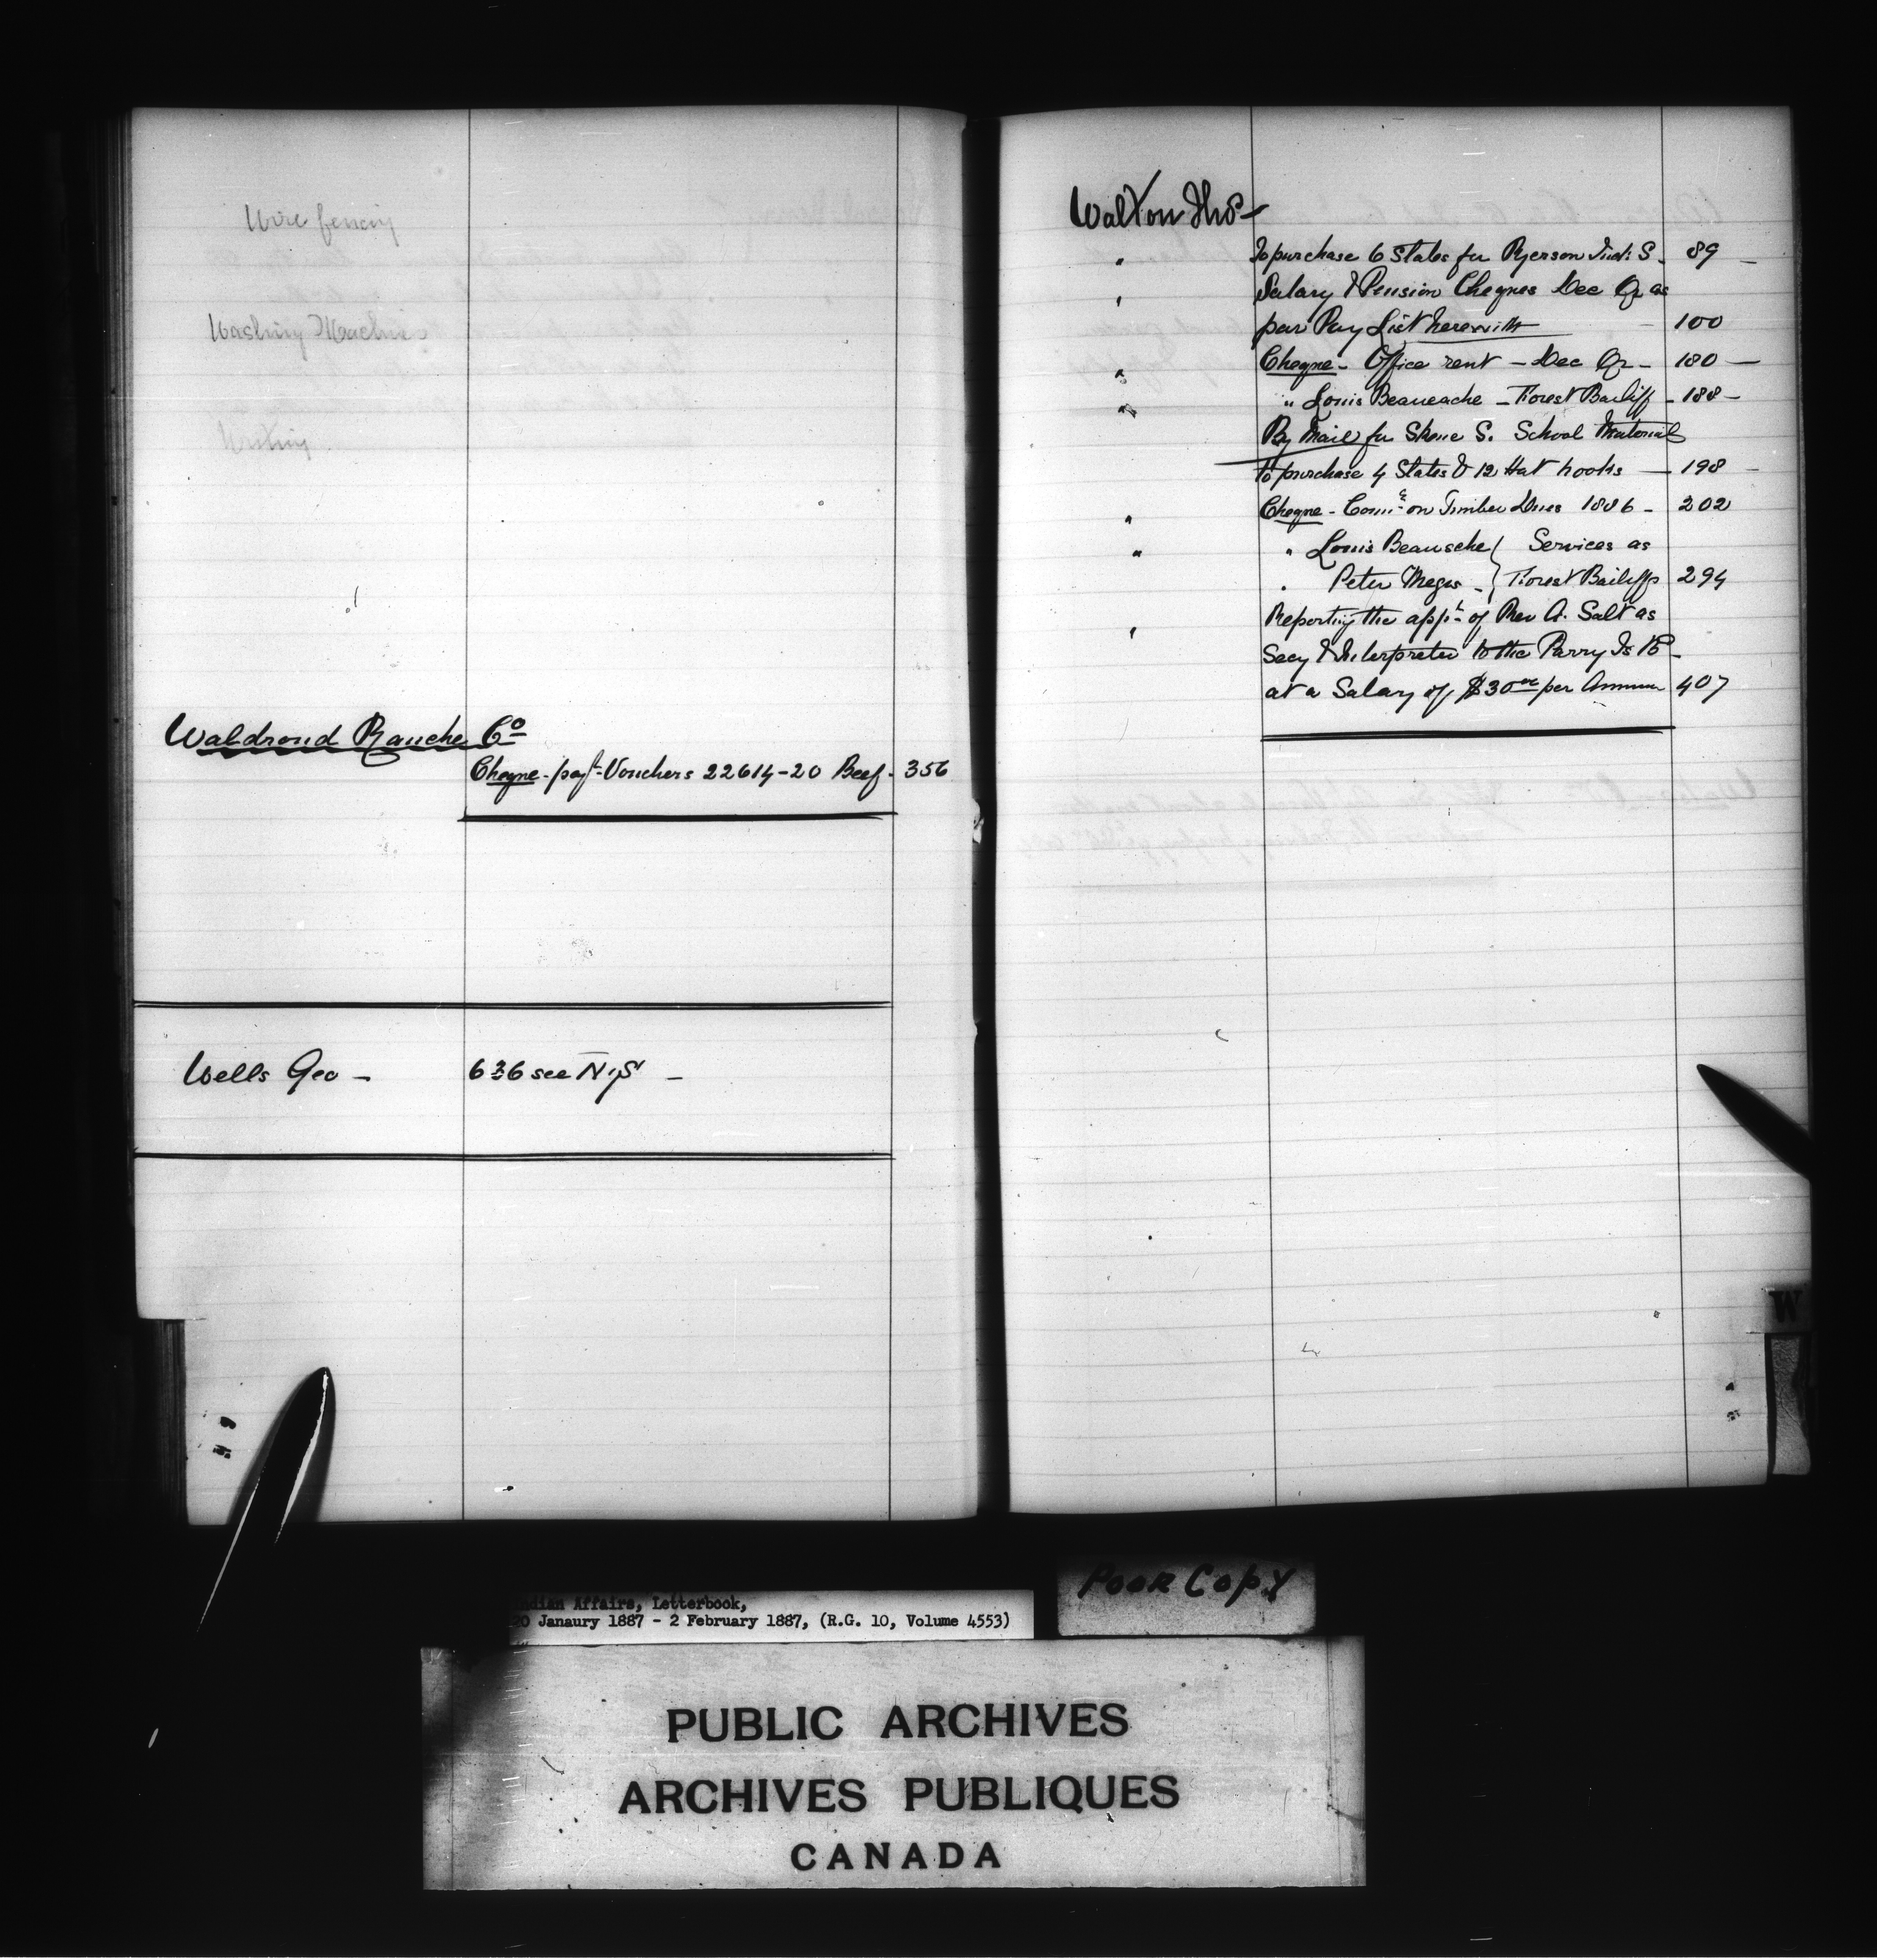 Wire fencing
Washing Machine
Writing
Waldrond Ranche Co
Cheque - payt Vouchers 22614-20 Beef - 356
Wells Geo - 636 see N.S. -
Walton Thos -
" To purchase 6 Slates for Ryerson Ind: S. 89 -
" Salary & Pension Cheques Dec Qr as
per Pay List herewith - 100
" Cheque - Office rent - Dec Qr - 180 -
" " Louis Beaucache - Forest Bailiff - 188 -
By Mail for Skene S. School Material
To purchase 4 Slates & 12 Hat hooks - 198 -
" Cheque - Comn on Timber Dues 1886 - 202
" " Louis Beausche } Services as
" Peter Megis - } Forest Bailiffs 294
" Reporting the appt of Rev A. Salt as
Secy & Interpreter to the Parry Is B -
at a Salary of $30 00 per Annum 407
W
Poor Copy
ndian Affairs, Letterbook,
20 Janaury 1887 - 2 February 1887, (R.G. 10, Volume 4553)
PUBLIC ARCHIVES
ARCHIVES PUBLIQUES
CANADA